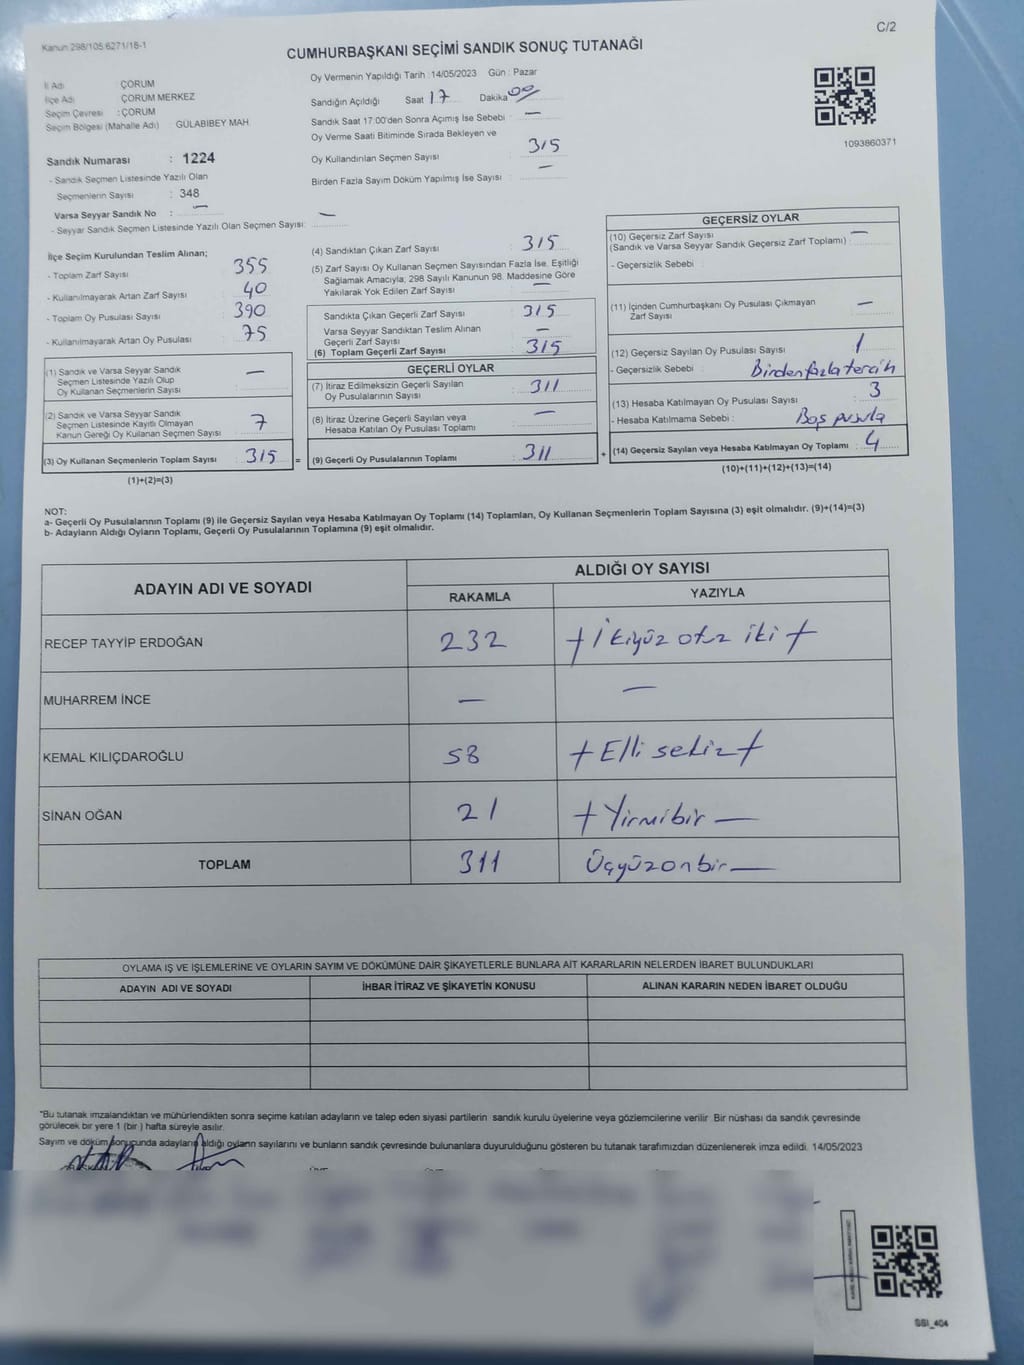 Kanun 298/105 6271/18-1
C/2
CUMHURBAŞKANI SEÇİMİ SANDIK SONUÇ TUTANAĞI
İl Adı : ÇORUM
İlçe Adı : ÇORUM MERKEZ
Seçim Çevresi : ÇORUM
Seçim Bölgesi (Mahalle Adı) : GÜLABİBEY MAH.
Oy Vermenin Yapıldığı Tarih : 14/05/2023 Gün : Pazar
Sandığın Açıldığı Saat 17 Dakika 00
Sandık Saat 17:00'den Sonra Açımış İse Sebebi : —
Oy Verme Saati Bitiminde Sırada Bekleyen ve
Oy Kullandırılan Seçmen Sayısı : 315
Birden Fazla Sayım Döküm Yapılmış İse Sayısı : —
1093860371
Sandık Numarası : 1224
- Sandık Seçmen Listesinde Yazılı Olan
Seçmenlerin Sayısı : 348
Varsa Seyyar Sandık No : —
- Seyyar Sandık Seçmen Listesinde Yazılı Olan Seçmen Sayısı: —
İlçe Seçim Kurulundan Teslim Alınan;
- Toplam Zarf Sayısı : 355
- Kullanılmayarak Artan Zarf Sayısı : 40
- Toplam Oy Pusulası Sayısı : 390
- Kullanılmayarak Artan Oy Pusulası : 75
(1) Sandık ve Varsa Seyyar Sandık
Seçmen Listesinde Yazılı Olup
Oy Kullanan Seçmenlerin Sayısı : —
(2) Sandık ve Varsa Seyyar Sandık
Seçmen Listesinde Kayıtlı Olmayan
Kanun Gereği Oy Kullanan Seçmen Sayısı : 7
(3) Oy Kullanan Seçmenlerin Toplam Sayısı : 315 =
(1)+(2)=(3)
(4) Sandıktan Çıkan Zarf Sayısı : 315
(5) Zarf Sayısı Oy Kullanan Seçmen Sayısından Fazla İse, Eşitliği
Sağlamak Amacıyla; 298 Sayılı Kanunun 98. Maddesine Göre
Yakılarak Yok Edilen Zarf Sayısı : —
Sandıkta Çıkan Geçerli Zarf Sayısı : 315
Varsa Seyyar Sandıktan Teslim Alınan
Geçerli Zarf Sayısı : —
(6) Toplam Geçerli Zarf Sayısı : 315
GEÇERLİ OYLAR
(7) İtiraz Edilmeksizin Geçerli Sayılan
Oy Pusulalarının Sayısı : 311
(8) İtiraz Üzerine Geçerli Sayılan veya
Hesaba Katılan Oy Pusulası Toplamı : —
(9) Geçerli Oy Pusulalarının Toplamı : 311 +
GEÇERSİZ OYLAR
(10) Geçersiz Zarf Sayısı
(Sandık ve Varsa Seyyar Sandık Geçersiz Zarf Toplamı) : —
- Geçersizlik Sebebi :
(11) İçinden Cumhurbaşkanı Oy Pusulası Çıkmayan
Zarf Sayısı : —
(12) Geçersiz Sayılan Oy Pusulası Sayısı : 1
- Geçersizlik Sebebi : Birden fazla tercih
(13) Hesaba Katılmayan Oy Pusulası Sayısı : 3
- Hesaba Katılmama Sebebi : Boş pusula
(14) Geçersiz Sayılan veya Hesaba Katılmayan Oy Toplamı : 4
(10)+(11)+(12)+(13)=(14)
NOT:
a- Geçerli Oy Pusulalarının Toplamı (9) ile Geçersiz Sayılan veya Hesaba Katılmayan Oy Toplamı (14) Toplamları, Oy Kullanan Seçmenlerin Toplam Sayısına (3) eşit olmalıdır. (9)+(14)=(3)
b- Adayların Aldığı Oyların Toplamı, Geçerli Oy Pusulalarının Toplamına (9) eşit olmalıdır.
ADAYIN ADI VE SOYADI
ALDIĞI OY SAYISI
RAKAMLA YAZIYLA
RECEP TAYYİP ERDOĞAN 232 + İkiyüz otuz iki +
MUHARREM İNCE — —
KEMAL KILIÇDAROĞLU 58 + Elli sekiz +
SİNAN OĞAN 21 + Yirmibir —
TOPLAM 311 Üçyüzonbir —
OYLAMA İŞ VE İŞLEMLERİNE VE OYLARIN SAYIM VE DÖKÜMÜNE DAİR ŞİKAYETLERLE BUNLARA AİT KARARLARIN NELERDEN İBARET BULUNDUKLARI
ADAYIN ADI VE SOYADI İHBAR İTİRAZ VE ŞİKAYETİN KONUSU ALINAN KARARIN NEDEN İBARET OLDUĞU
"Bu tutanak imzalandıktan ve mühürlendikten sonra seçime katılan adayların ve talep eden siyasi partilerin sandık kurulu üyelerine veya gözlemcilerine verilir. Bir nüshası da sandık çevresinde
görülecek bir yere 1 (bir ) hafta süreyle asılır.
Sayım ve döküm sonucunda adayların aldığı oyların sayılarını ve bunların sandık çevresinde bulunanlara duyurulduğunu gösteren bu tutanak tarafımızdan düzenlenerek imza edildi. 14/05/2023
SSI_404